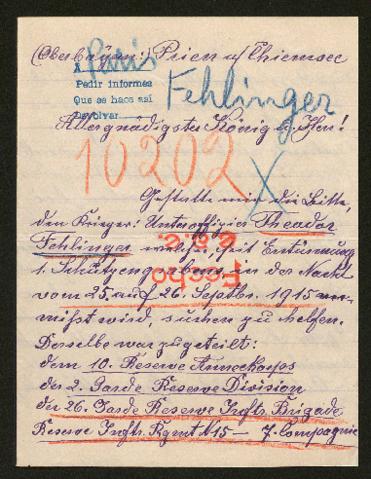 (Oberbayern:) Prien a/Chiemsee
A Paris
Pedir informes
Que se haga así
Devolver
Fehlinger
Allergnädigster König u. Herr!
10202
X
Gestatte mir die Bitte,
den Krieger: Unteroffizier Theodor
Fehlinger welcher seit Erstürmung
1. Schützengrabens in der Nacht
vom 25. auf 26. Septbr. 1915 ver-
mißt wird, suchen zu helfen.
Derselbe war zugeteilt:
dem 10. Reserve Armeekorps
der 2. Garde Reserve Division
der 26. Garde Reserve Inftr. Brigade
Reserve Inftr. Rgmt N 15 – 7. Compagnie
Fecho